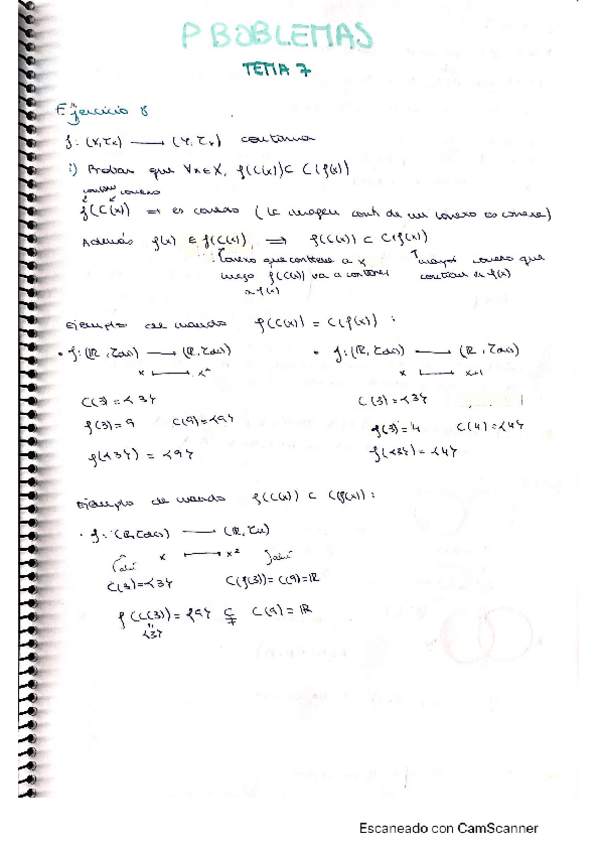 PROBLEMAS
TEMA 7
Ejercicio 8
f: (X,τx) ⟶ (Y,τY) continua
i) Probar que ∀x∈X, f(C(x)) ⊂ C(f(x))
conexo
f(C(x)) ⇒ es conexo (la imagen cont de un conexo es conexo)
Además f(x) ∈ f(C(x)) ⇒ f(C(x)) ⊂ C(f(x))
conexo que contiene a x
luego f(C(x)) va a contener
a f(x)
mayor conexo que
contiene a f(x)
Ejemplo de cuando f(C(x)) = C(f(x)) :
• f: (ℝ, τdis) ⟶ (ℝ, τdis)
x ⟼ x²
C(3) = {3}
f(3) = 9 C(9) = {9}
f({3}) = {9}
• f: (ℝ, τdis) ⟶ (ℝ, τdis)
x ⟼ x+1
C(3) = {3}
f(3) = 4 C(4) = {4}
f({3}) = {4}
Ejemplo de cuando f(C(x)) ⊂ C(f(x)) :
• f: (ℝ, τdis) ⟶ (ℝ, τu)
x ⟼ x²
C(3) = {3} C(f(3)) = C(9) = ℝ
f(C(3)) = {9} ⊊ C(9) = ℝ
{3}
Escaneado con CamScanner